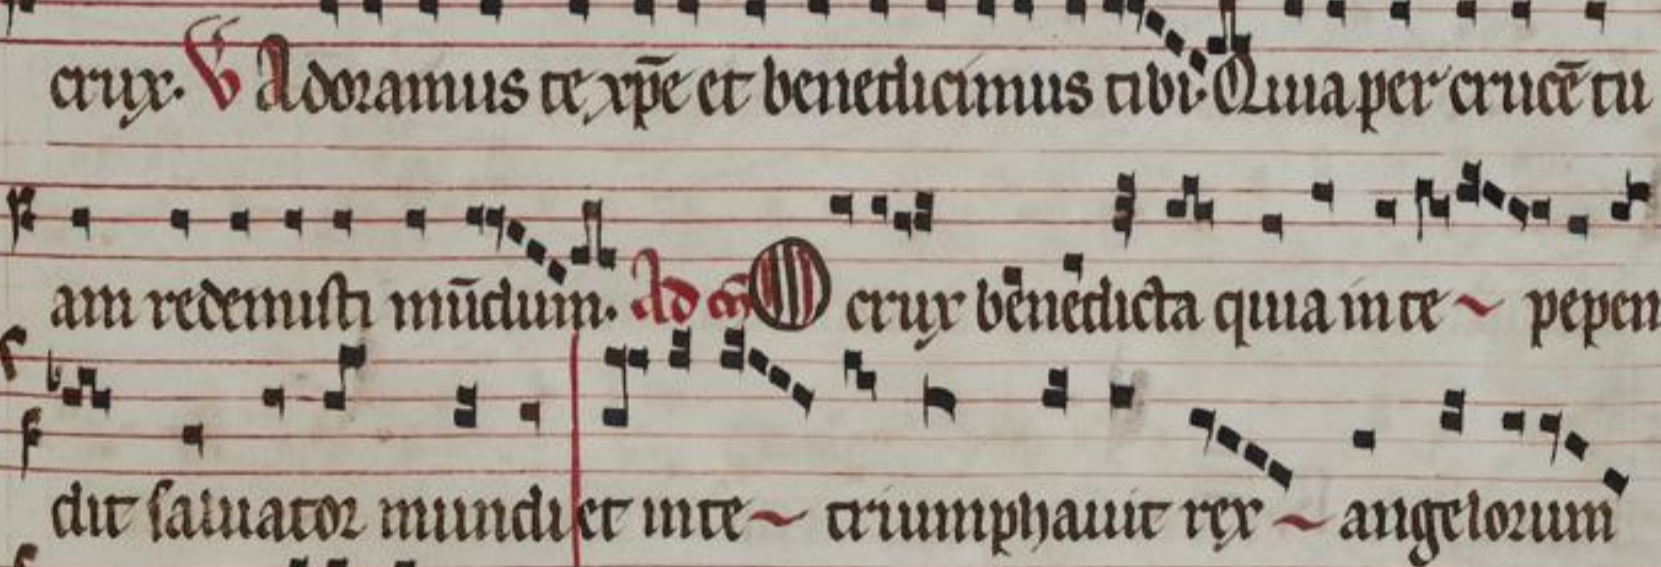 crux. V Adoramus te xp̄e et benedicimus tibi. Quia per crucē tu
am redemisti mūdum. Ad cm̄ O crux benedicta quia in te ~ pepen
dit saluator mundi et in te ~ triumphauit rex ~ angelorum